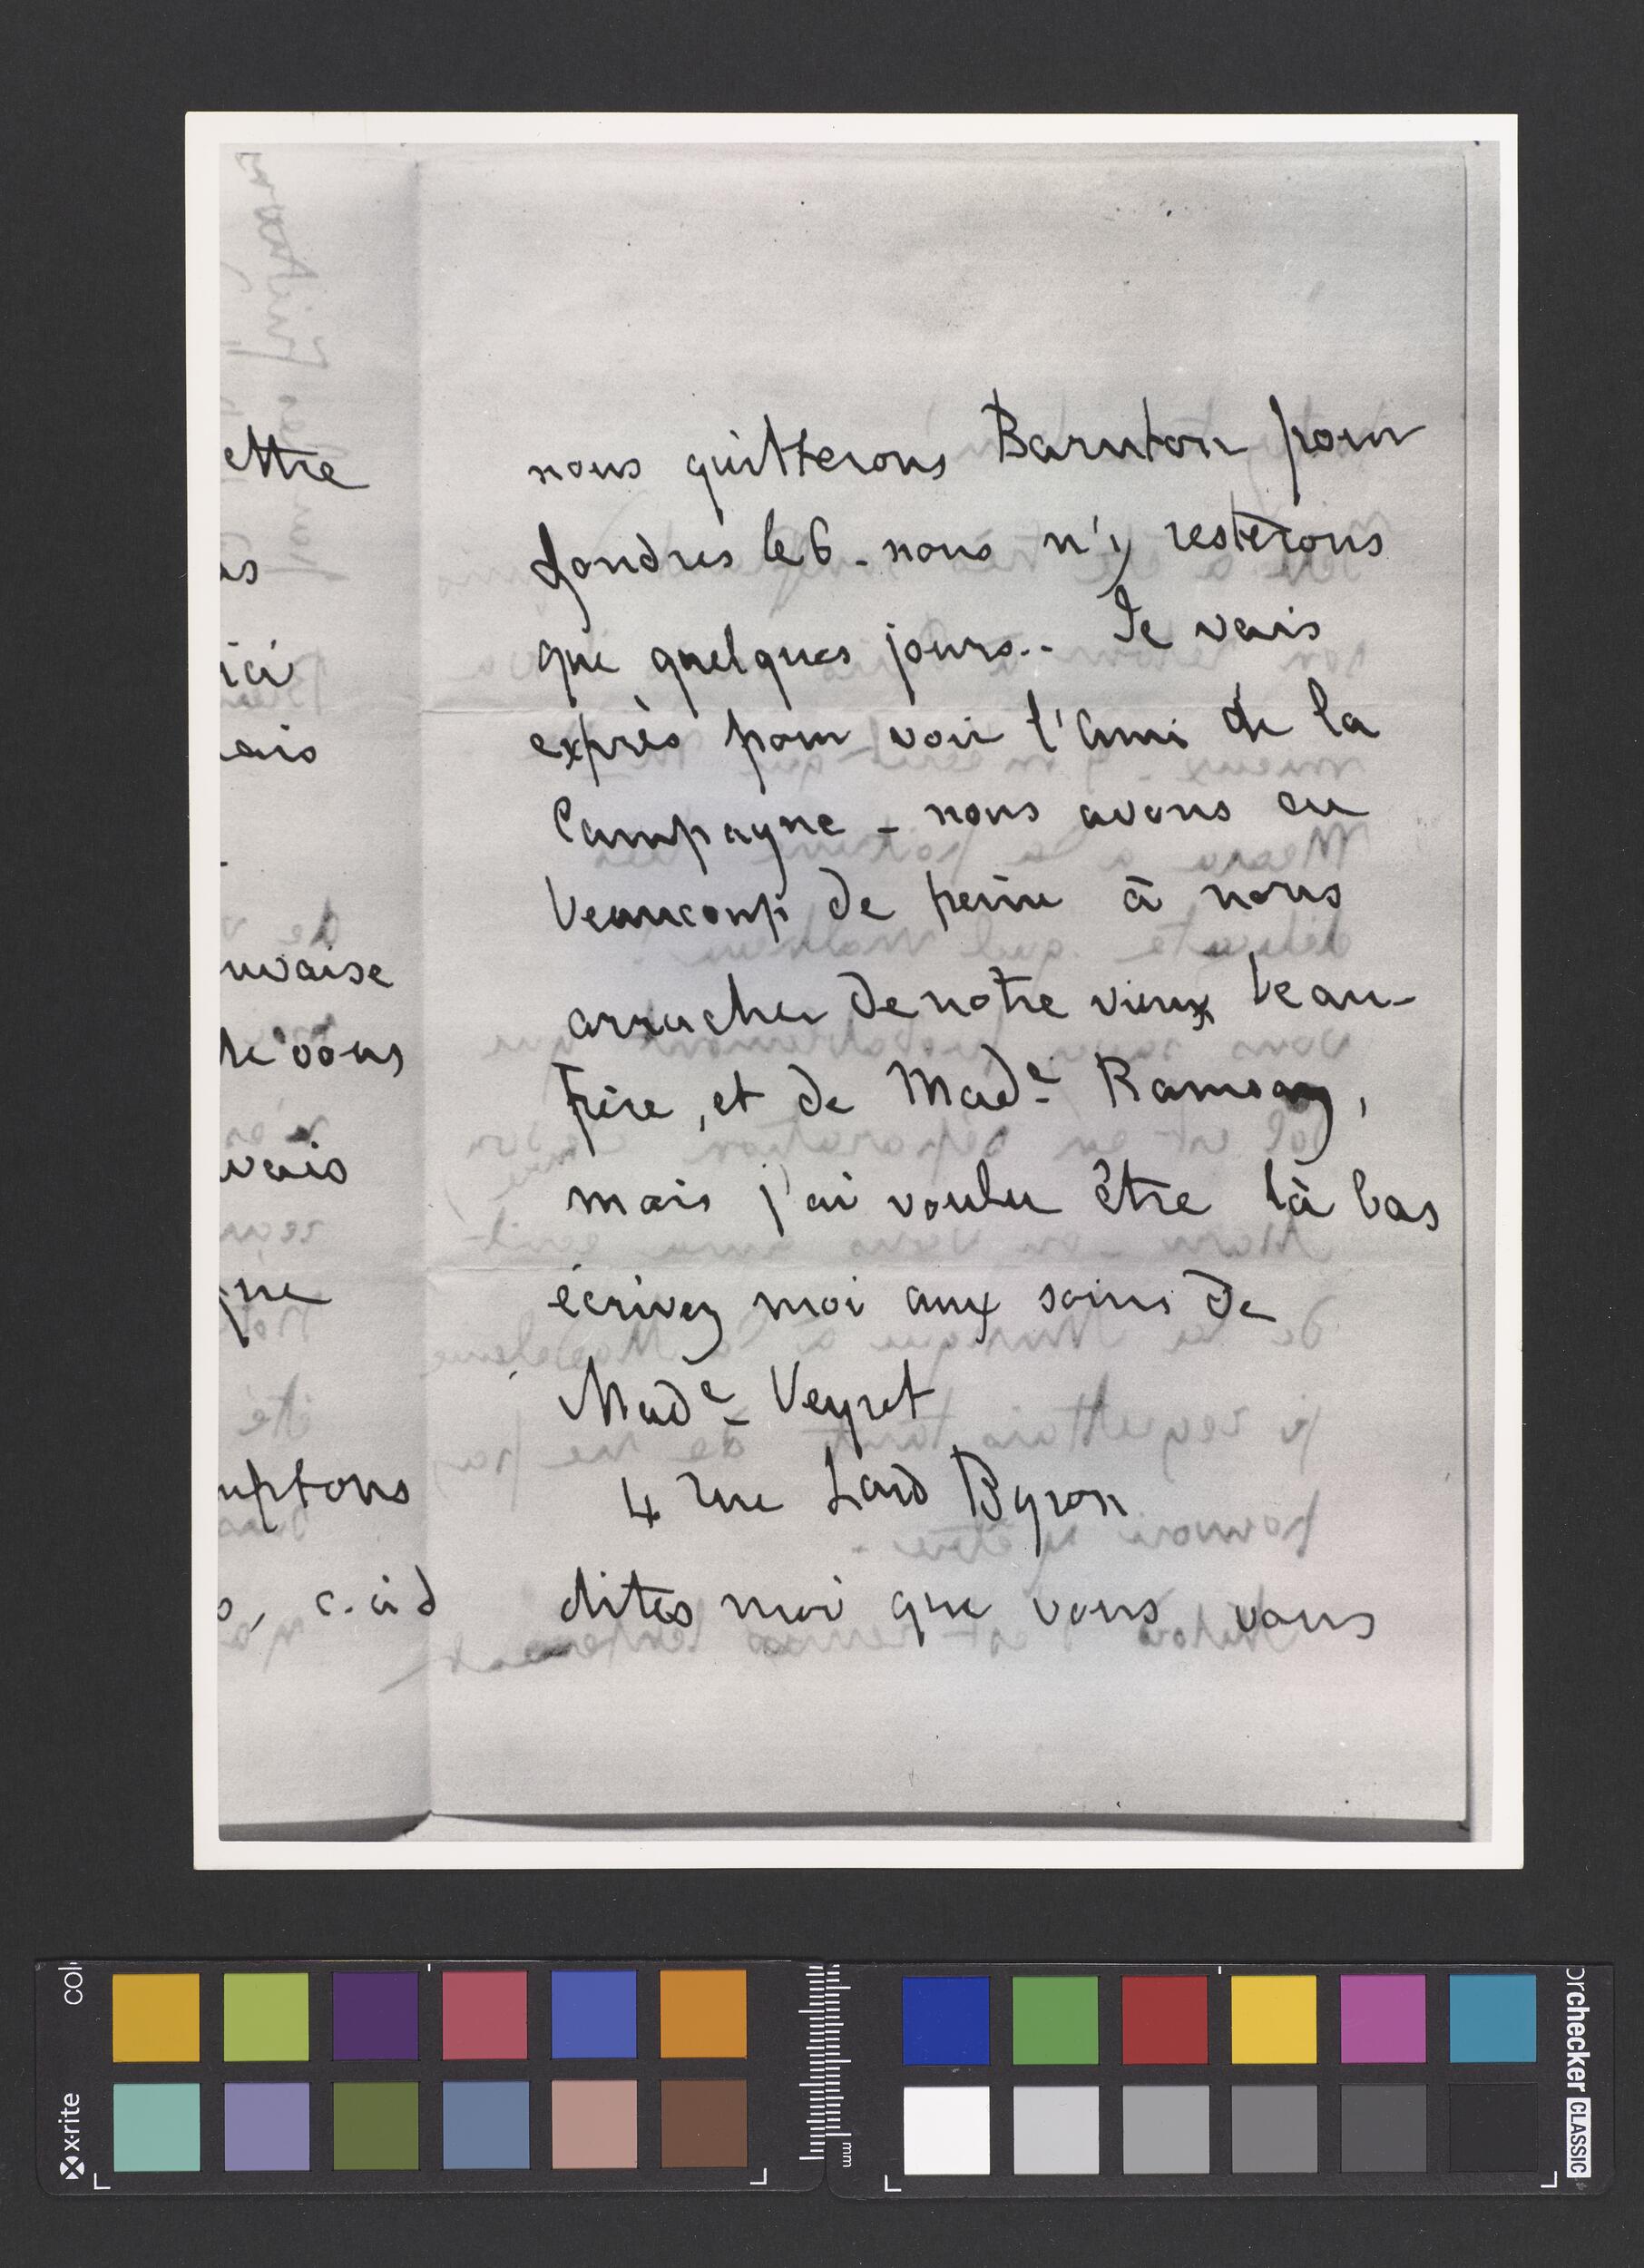 ettre
us
ici
ais
uvaise
de vous
vais
que
mptons
c. à d
nous quitterons Barnton pour
Londres le 6 - nous n'y resterons
que quelques jours.. Je vais
exprès pour voir l'Ami de la
Campagne - nous avons eu
beaucoup de peine à nous
arracher de notre vieux beau-
frère, et de Made Ramsay,
mais j'ai voulu être là bas
écrivez moi aux soins de
Made Veyret
4 rue Lord Byron
dites moi que vous vous
x-rite
colorchecker CLASSIC
mm